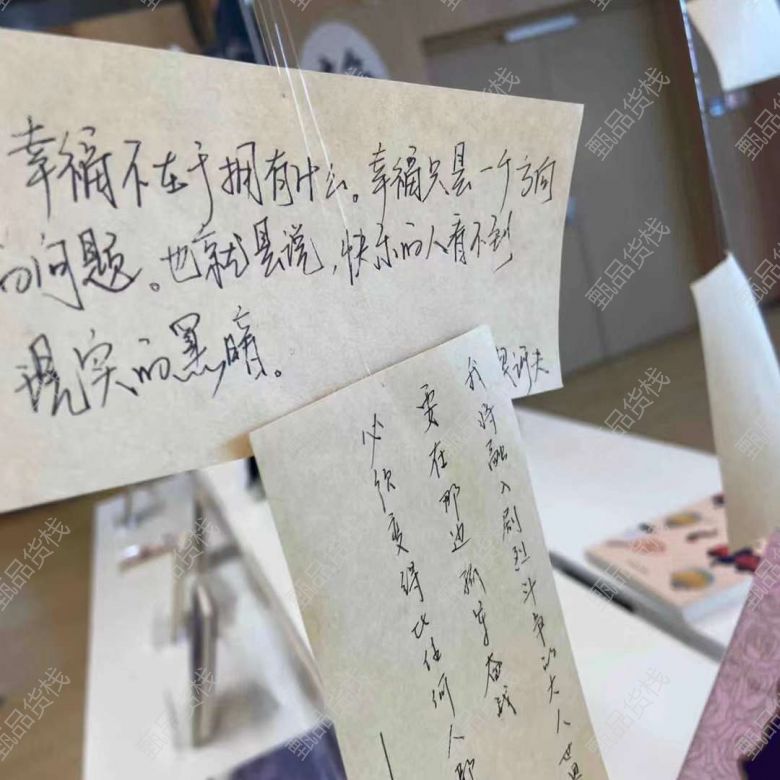 幸福不在于拥有什么。幸福只是一个方向
的问题。也就是说，快乐的人看不到
现实的黑暗。
我将融入剧烈斗争的大人世界
要在那边孤军奋战
必须变得比任何人都
甄品货栈